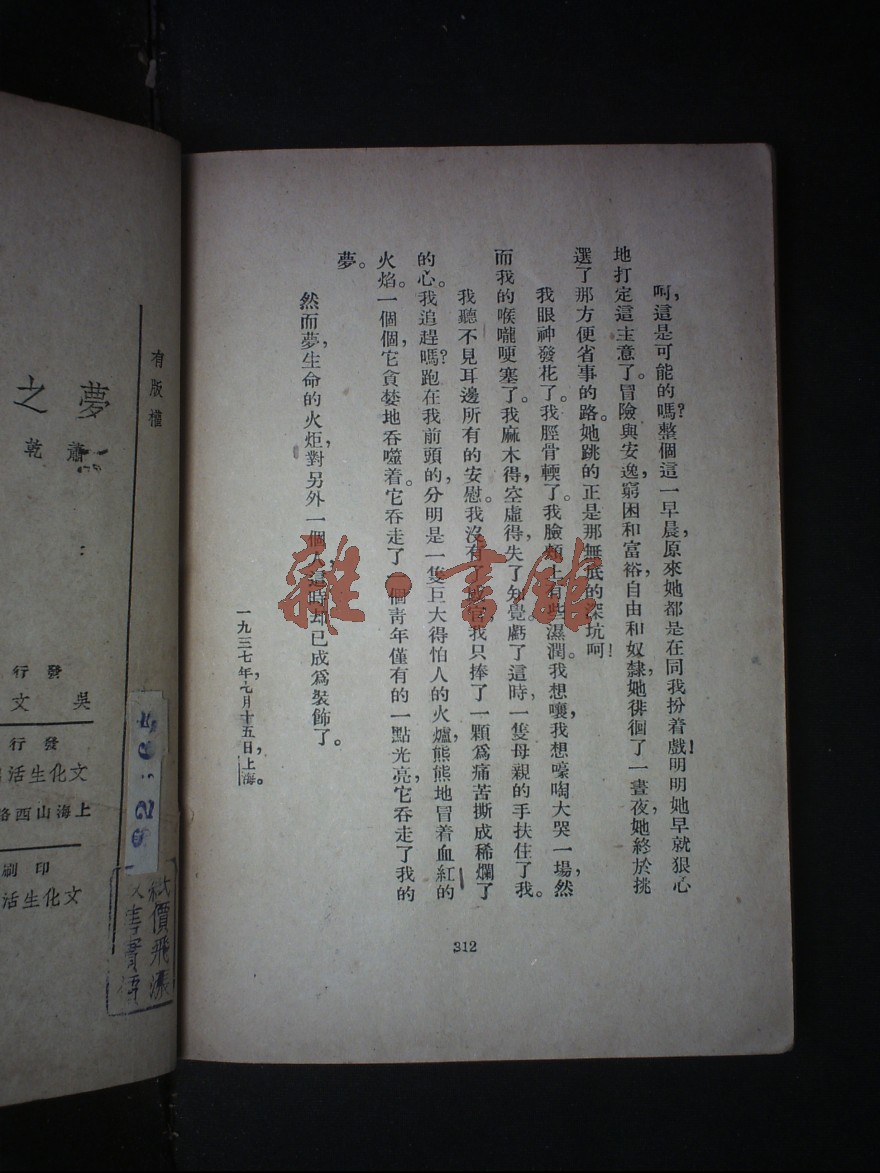 呵，這是可能的嗎？整個這一早晨，原來她都是在同我扮着戲！明明她早就狠心
地打定這主意了。冒險與安逸，窮困和富裕，自由和奴隸，她徘徊了一晝夜，她終於挑
選了那方便省事的路。她跳的正是那無底的深坑呵！
我眼神發花了。我脛骨輭了。我臉頰上有些濕潤。我想嚷，我想嚎啕大哭一場，然
而我的喉嚨哽塞了。我麻木得，空虛得，失了知覺。虧了這時，一隻母親的手扶住了我。
我聽不見耳邊所有的安慰。我沒有了感官，我只捧了一顆爲痛苦撕成稀爛了
的心。我追趕嗎？跑在我前頭的，分明是一隻巨大得怕人的火爐，熊熊地冒着血紅的
火焰。一個個，它貪婪地吞噬着。它吞走了一個青年僅有的一點光亮，它吞走了我的
夢。
然而夢，生命的火炬，對另外一個人，這時却已成爲裝飾了。
一九三七年，七月十五日，上海。
312
雜·書館
有版權
夢之
蕭乾
發行
吳文
發行
文化生活
上海山西路
印刷
文化生活
價飛漲